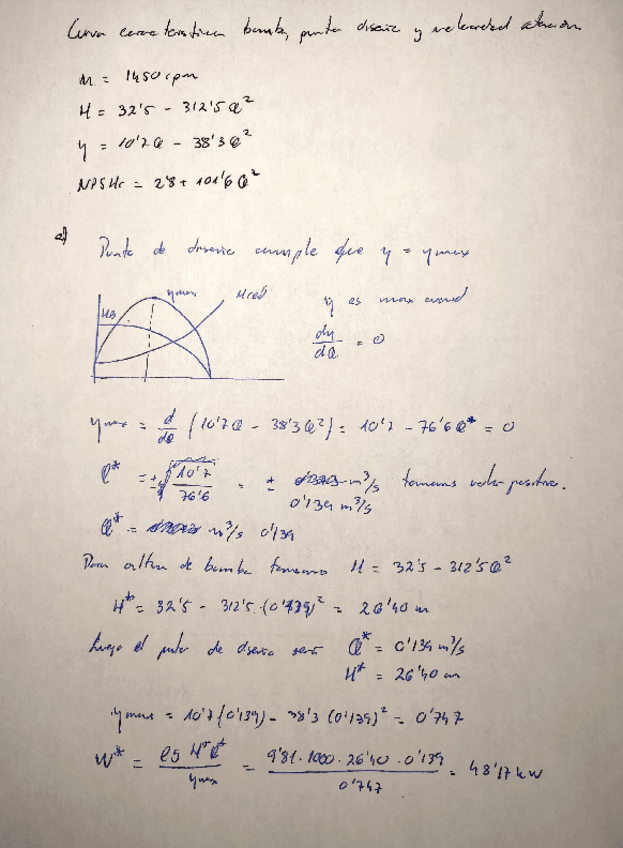 Curva característica bomba, punto diseño y velocidad
n = 1450 rpm
H = 32'5 - 312'5 Q²
η = 10'7Q - 38'3Q²
NPSHr = 2'8 + 101'6 Q²
a) Punto de diseño cumple que η = ηmax
ηmax Hred
HB
η es max cuand
dη/dQ = 0
ηmax = d/dQ (10'7Q - 38'3Q²) = 10'7 - 76'6Q* = 0
Q* = ± 10'7/76'6 = ± m³/s tomamos valor positivo.
0'139 m³/s
Q* = m³/s 0'139
Para altura de bomba tomamos H = 32'5 - 312'5Q²
H* = 32'5 - 312'5 · (0'139)² = 26'40 m
Luego el punto de diseño será Q* = 0'139 m³/s
H* = 26'40 m
ηmax = 10'7 (0'139) - 38'3 (0'139)² = 0'747
W* = ρg H* Q*/ηmax = 9'81 · 1000 · 26'40 · 0'139/0'747 = 48'17 kW